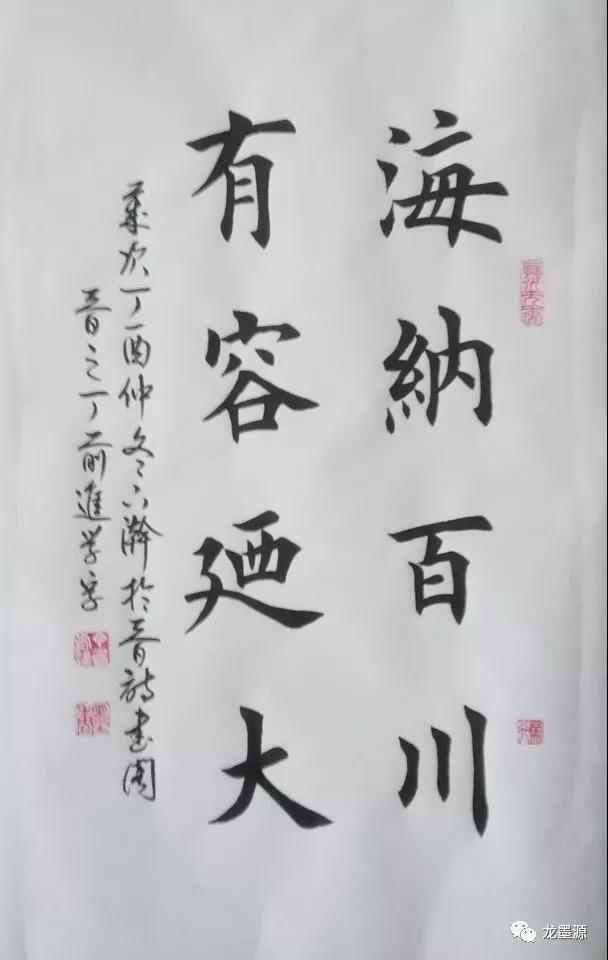 海納百川
有容廼大
歲次丁酉仲冬下澣於晋詩書閣
晋之丁前進学字
龙墨源